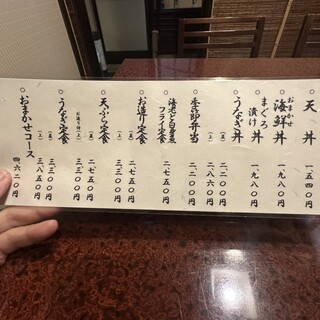 ○ 天丼 一、五四〇円
○ おまかせ 海鮮丼 一、九八〇円
○ まぐろ漬け丼 一、九八〇円
○ うなぎ丼 (並) 二、二〇〇円
(上) 二、八六〇円
○ 季節弁当 二、二〇〇円
○ フライ定食 二、七五〇円
○ お造り定食 二、七五〇円
(上) 三、三〇〇円
○ 天ぷら定食 二、七五〇円
お造り付(上) 三、三〇〇円
○ うなぎ定食 三、三〇〇円
(上) 三、八五〇円
○ おまかせコース 四、六二〇円